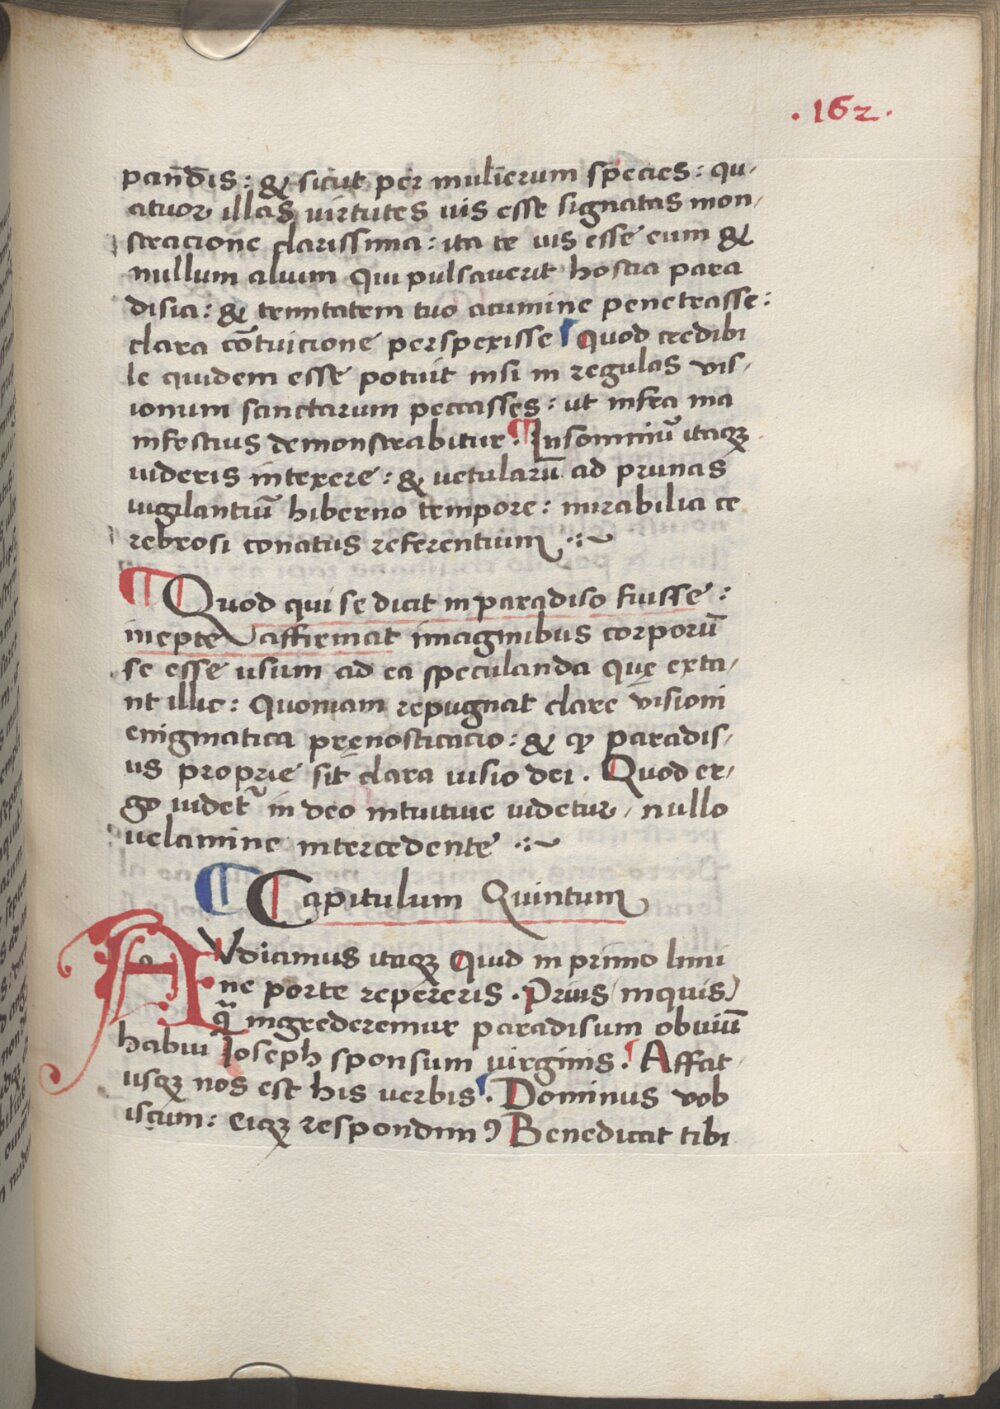 .162.
panndis: & sicut per mulierum species: qu-
atuor illas virtutes vis esse signatas mon-
stracione clarissima: ita te vis esse eum &
nullum alium qui pulsaverit hostia para
disia: & trinitatem tuo acumine penetrasse:
clara cōtuicione perspexisse Quod credibi
le quidem esse potuit nisi in regulas vis-
ionum sanctarum peccasses: ut infra ma
nifestius demonstrabitur. Insomniū itaqꝫ
videris intexere: & vetularū ad prunas
vigilantiū hiberno tempore: mirabilia ce
rebrosi conatus referentium
Quod qui se dicit in paradiso fuisse:
inepte affirmat imaginibus corporū
se esse usum ad ea speculanda quę exta-
nt illic: Quoniam repugnat clare visioni
enigmatica pręnosticacio: & ꝙ paradis-
us proprie sit clara visio dei. Quod er-
go videt᷑ in deo intuitive videtur, nullo
velamine intercedente
Capitulum Quintum
AVdiamus itaqꝫ Quid in primo limi
ne porte repereris. Prius (inquis)
qᷓ ingrederemur paradisum obviū
habui Ioseph sponsum virginis. Affat
usqꝫ nos est his verbis. Dominus vob
iscum: eiqꝫ respondim9 Benedicat tibi